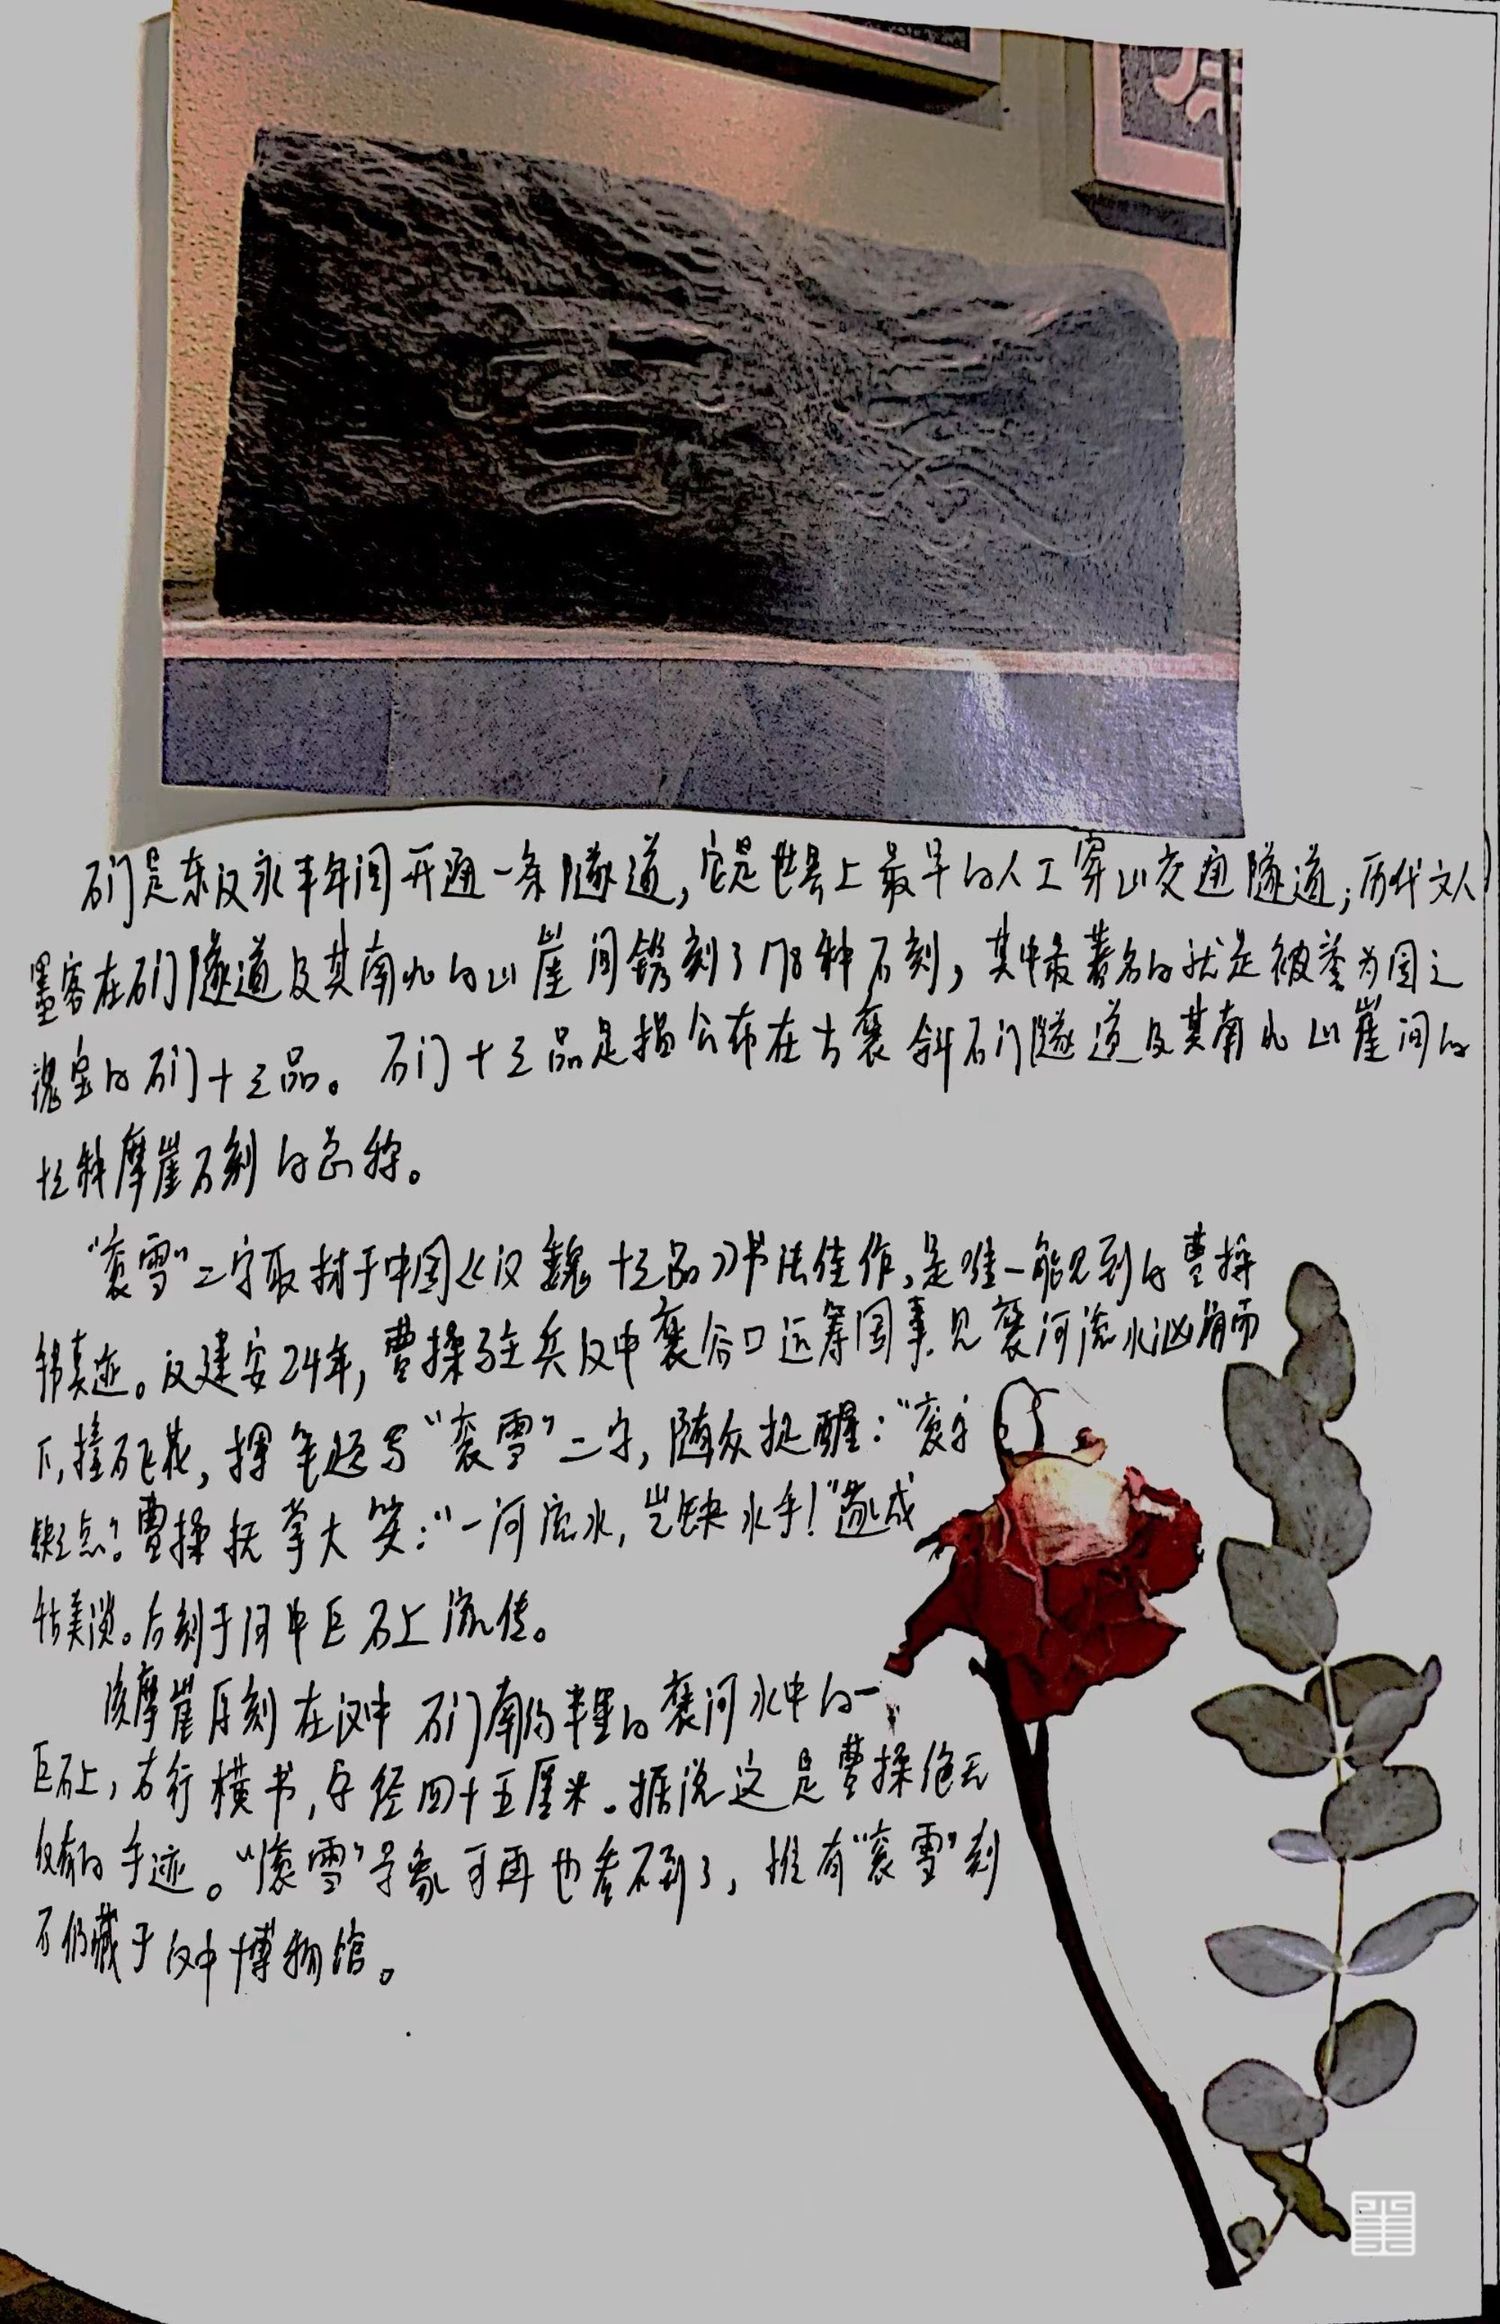 石门是东汉永平年间开通一条隧道，它是世界上最早的人工穿山交通隧道；历代文人
墨客在石门隧道及其南北的山崖间镌刻了178种石刻，其中最著名的就是被誉为国之
瑰宝的石门十三品。石门十三品是指公布在古褒斜石门隧道及其南北山崖间的
十三种摩崖石刻的总称。
“衮雪”二字取材于中国《汉魏十三品》书法佳作，是唯一能见到的曹操
书真迹。汉建安24年，曹操驻兵汉中褒谷口运筹国事，见褒河流水汹涌而
下，撞石飞花，挥笔题写“衮雪”二字，随众提醒：“衮字
缺三点？曹操抚掌大笑：“一河流水，岂缺水乎！”遂成
千古美谈。后刻于河中巨石上流传。
该摩崖原刻在汉中石门南约半里的褒河水中的一
巨石上，右行横书，字径四十五厘米。据说这是曹操绝无
仅有的手迹。“滚雪”景象可再也看不到了，惟有“衮雪”刻
石仍藏于汉中博物馆。